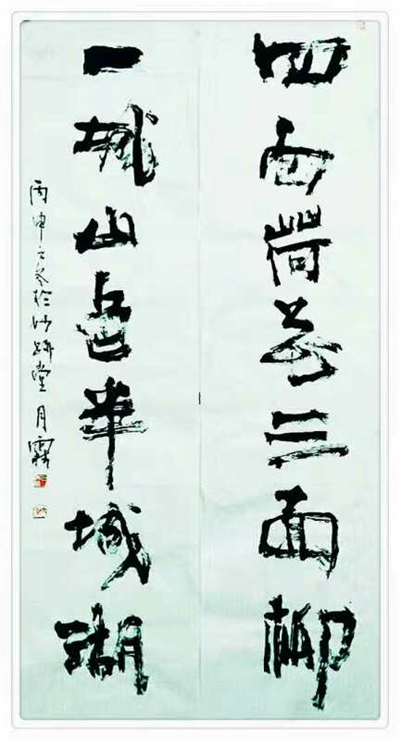 四面荷花三面柳
一城山色半城湖
丙申之冬於妙堂月